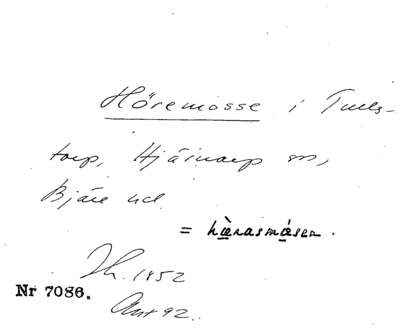 Höremosse i Tuels-
torp, Hjärnarp sn,
Bjäre hd
= hæ̀rasmåsen.
Th. 1852
Nr 7086.
Ant 92.